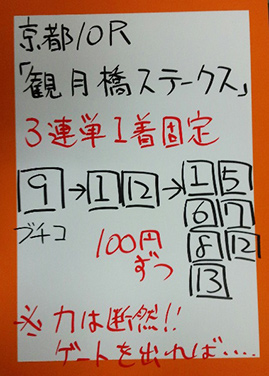 京都10R
「観月橋ステークス」
3連単1着固定
9→1 12→1 5
6 7
8 12
13
ブチコ
100円
ずつ
※力は断然!!
ゲートを出れば‥‥